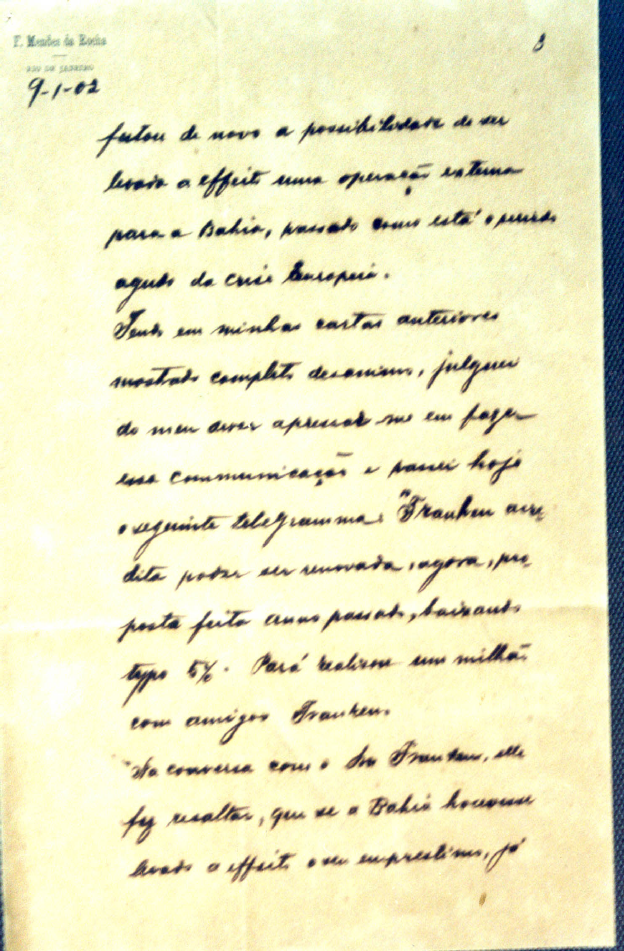 F. Mendes da Rocha
RIO DE JANEIRO
9-1-02
3
de novo a possibilidade de ser
levada a effeito uma operação externa
para a Bahia, passado como está o periodo
agudo da crise Europeia.
Tendo em minhas cartas anteriores
mostrado completo desanimo, julguei
do meu dever apressar-me em fazer
essa communicação e passei hoje
o seguinte telegramma: "Frauken acre
dita poder ser renovada, agora, pro
posta feita anno passado, baixando
typo 5%. Pará realisou um milhão
com amigos Frauken.
Na conversa com o Snr Frauken, elle
fez resaltar, que se a Bahia houvesse
levado a effeito o seu emprestimo, já